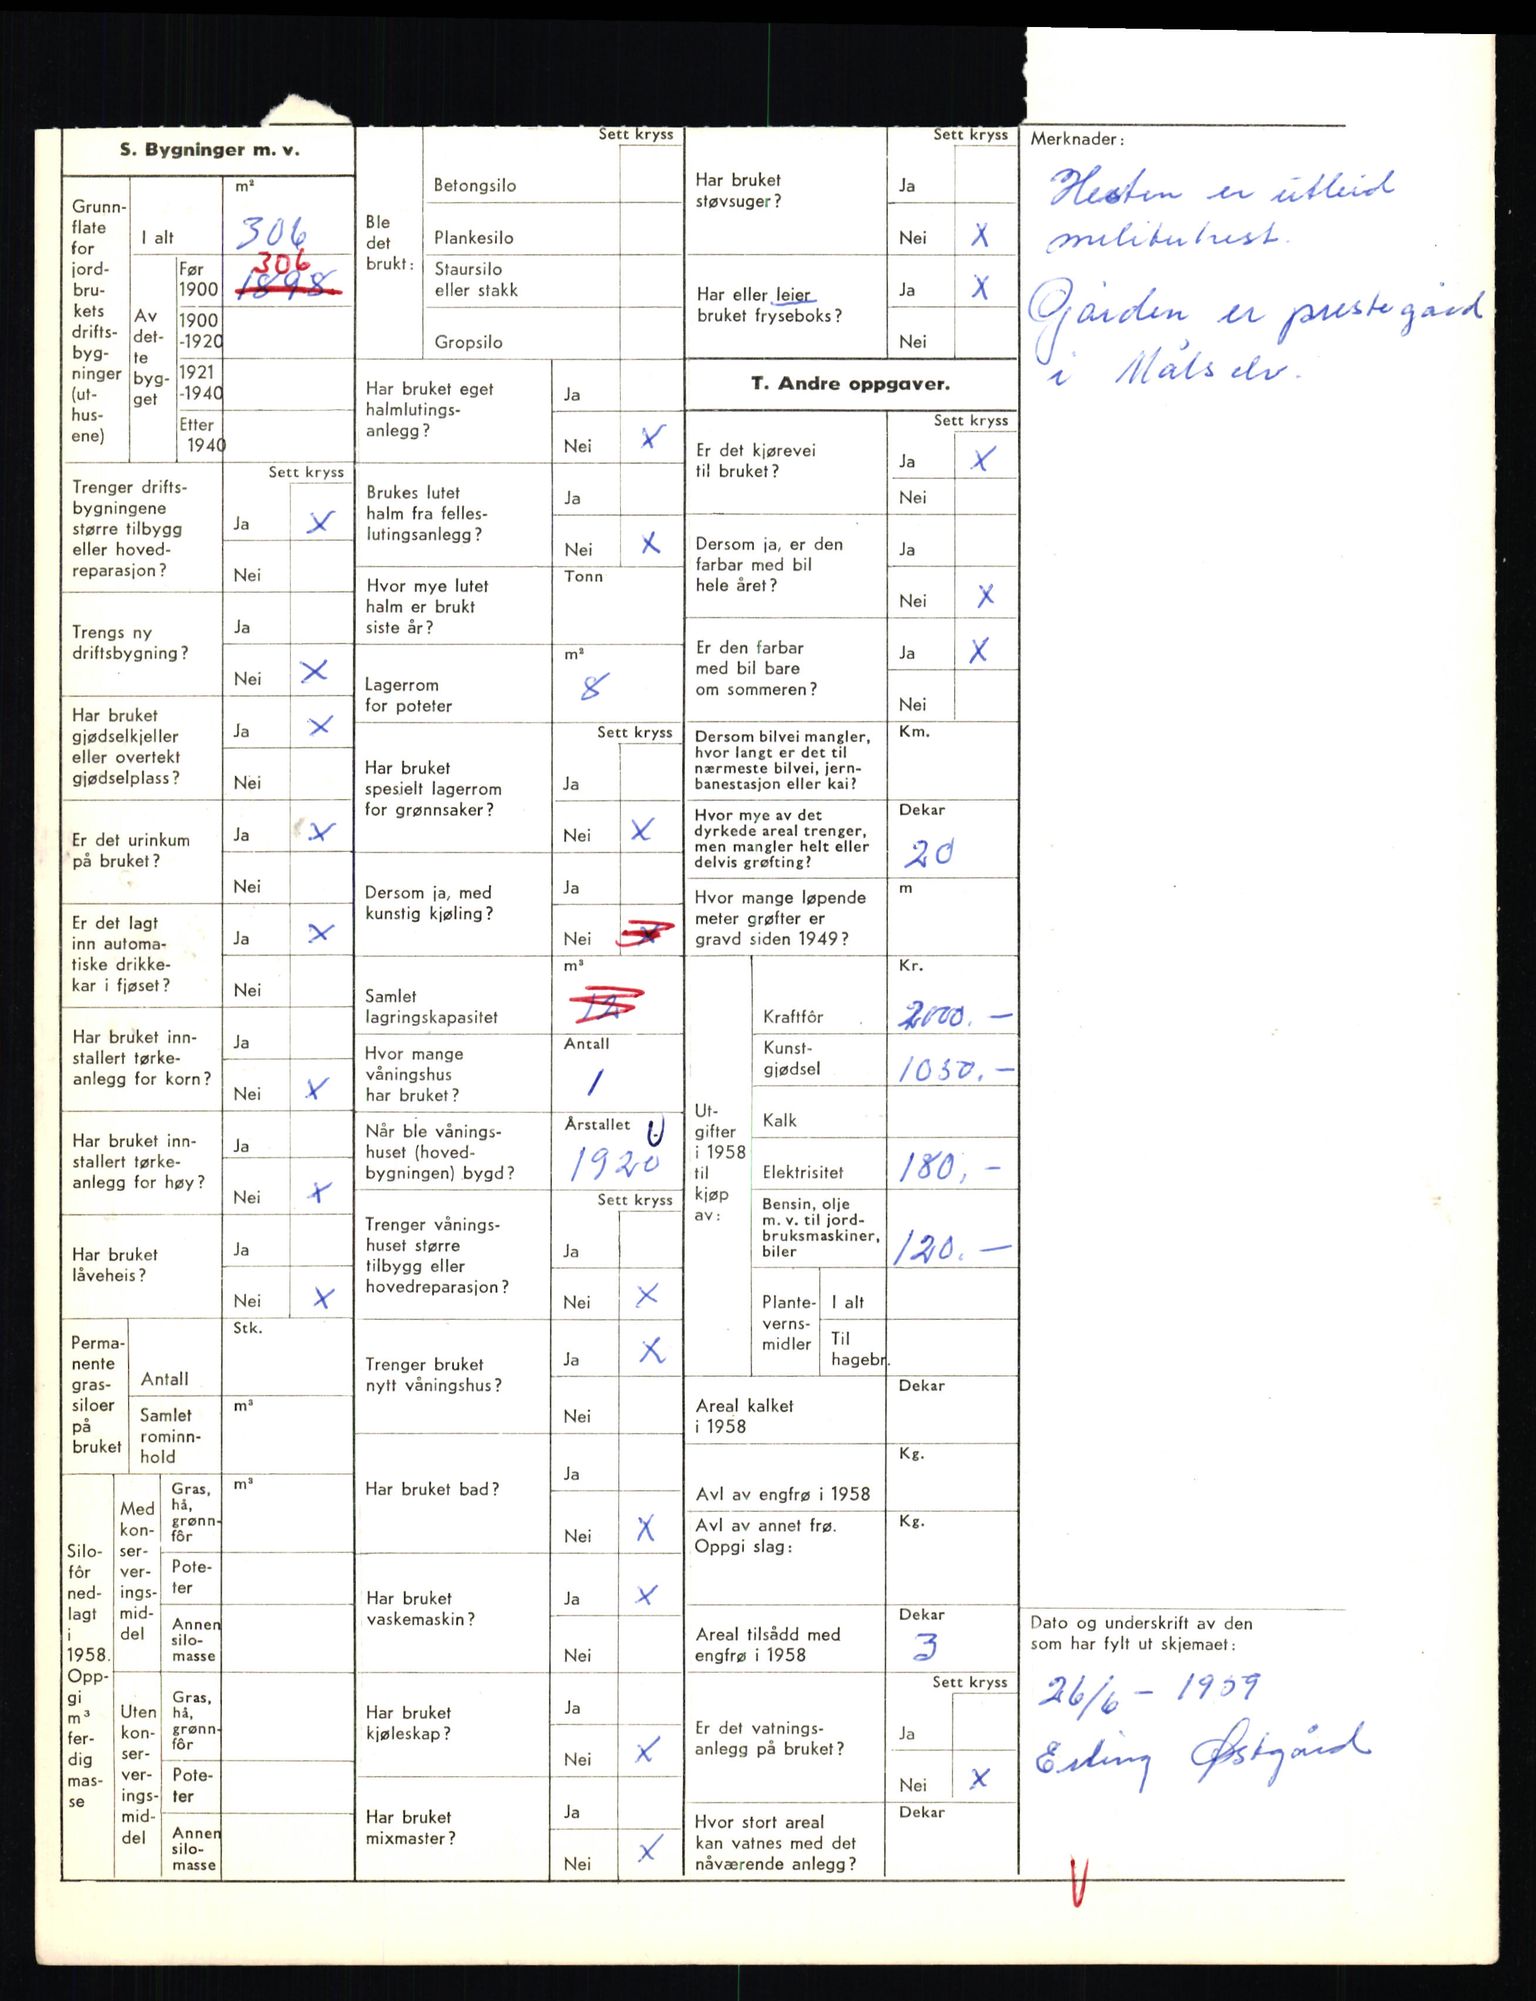 S. Bygninger m. v.
Grunn-
flate
for
jord-
bru-
kets
drifts-
byg-
ninger
(ut-
hus-
ene)
I alt
m²
306
Av
det-
te
byg-
get
Før
1900
306
1898
1900
-1920
1921
-1940
Etter
1940
Sett kryss
Trenger drifts-
bygningene
større tilbygg
eller hoved-
reparasjon?
Ja X
Nei
Trengs ny
driftsbygning?
Ja
Nei X
Har bruket
gjødselkjeller
eller overtekt
gjødselplass?
Ja X
Nei
Er det urinkum
på bruket?
Ja X
Nei
Er det lagt
inn automa-
tiske drikke-
kar i fjøset?
Ja X
Nei
Har bruket inn-
stallert tørke-
anlegg for korn?
Ja
Nei X
Har bruket inn-
stallert tørke-
anlegg for høy?
Ja
Nei X
Har bruket
låveheis?
Ja
Nei X
Perma-
nente
gras-
siloer
på
bruket
Antall
Stk.
Samlet
rominn-
hold
m³
Silo-
fôr
ned-
lagt
i
1958.
Opp-
gi
m³
fer-
dig
mas-
se
Med
kon-
ser-
ver-
ings-
mid-
del
Gras,
hå,
grønn-
fôr
m³
Pote-
ter
Annen
silo-
masse
Uten
kon-
ser-
ver-
ings-
mid-
del
Gras,
hå,
grønn-
fôr
Pote-
ter
Annen
silo-
masse
Ble
det
brukt:
Sett kryss
Betongsilo
Plankesilo
Staursilo
eller stakk
Gropsilo
Har bruket eget
halmlutings-
anlegg?
Ja
Nei X
Brukes lutet
halm fra felles-
lutingsanlegg?
Ja
Nei X
Hvor mye lutet
halm er brukt
siste år?
Tonn
Lagerrom
for poteter
m²
8
Sett kryss
Har bruket
spesielt lagerrom
for grønnsaker?
Ja
Nei X
Dersom ja, med
kunstig kjøling?
Ja
Nei X
Samlet
lagringskapasitet
m³
12
Hvor mange
våningshus
har bruket?
Antall
1
Når ble vånings-
huset (hoved-
bygningen) bygd?
Årstallet
1920
Sett kryss
Trenger vånings-
huset større
tilbygg eller
hovedreparasjon?
Ja
Nei X
Trenger bruket
nytt våningshus?
Ja X
Nei
Har bruket bad?
Ja
Nei X
Har bruket
vaskemaskin?
Ja X
Nei
Har bruket
kjøleskap?
Ja
Nei X
Har bruket
mixmaster?
Ja
Nei X
Sett kryss
Har bruket
støvsuger?
Ja
Nei X
Har eller leier
bruket fryseboks?
Ja X
Nei
T. Andre oppgaver.
Sett kryss
Er det kjørevei
til bruket?
Ja X
Nei
Dersom ja, er den
farbar med bil
hele året?
Ja
Nei X
Er den farbar
med bil bare
om sommeren?
Ja X
Nei
Dersom bilvei mangler,
hvor langt er det til
nærmeste bilvei, jern-
banestasjon eller kai?
Km.
Hvor mye av det
dyrkede areal trenger,
men mangler helt eller
delvis grøfting?
Dekar
20
Hvor mange løpende
meter grøfter er
gravd siden 1949?
m
Ut-
gifter
i 1958
til
kjøp
av:
Kr.
Kraftfôr 2000.—
Kunst-
gjødsel 1050.—
Kalk
Elektrisitet 180,—
Bensin, olje
m. v. til jord-
bruksmaskiner,
biler 120.—
Plante-
verns-
midler
I alt
Til
hagebr.
Areal kalket
i 1958
Dekar
Avl av engfrø i 1958
Kg.
Avl av annet frø.
Oppgi slag:
Kg.
Areal tilsådd med
engfrø i 1958
Dekar
3
Sett kryss
Er det vatnings-
anlegg på bruket?
Ja
Nei X
Hvor stort areal
kan vatnes med det
nåværende anlegg?
Dekar
Merknader:
Hesten er utleid
militærhest.
Gården er prestegård
i Målselv.
Dato og underskrift av den
som har fylt ut skjemaet:
26/6 – 1959
Erling Østgård